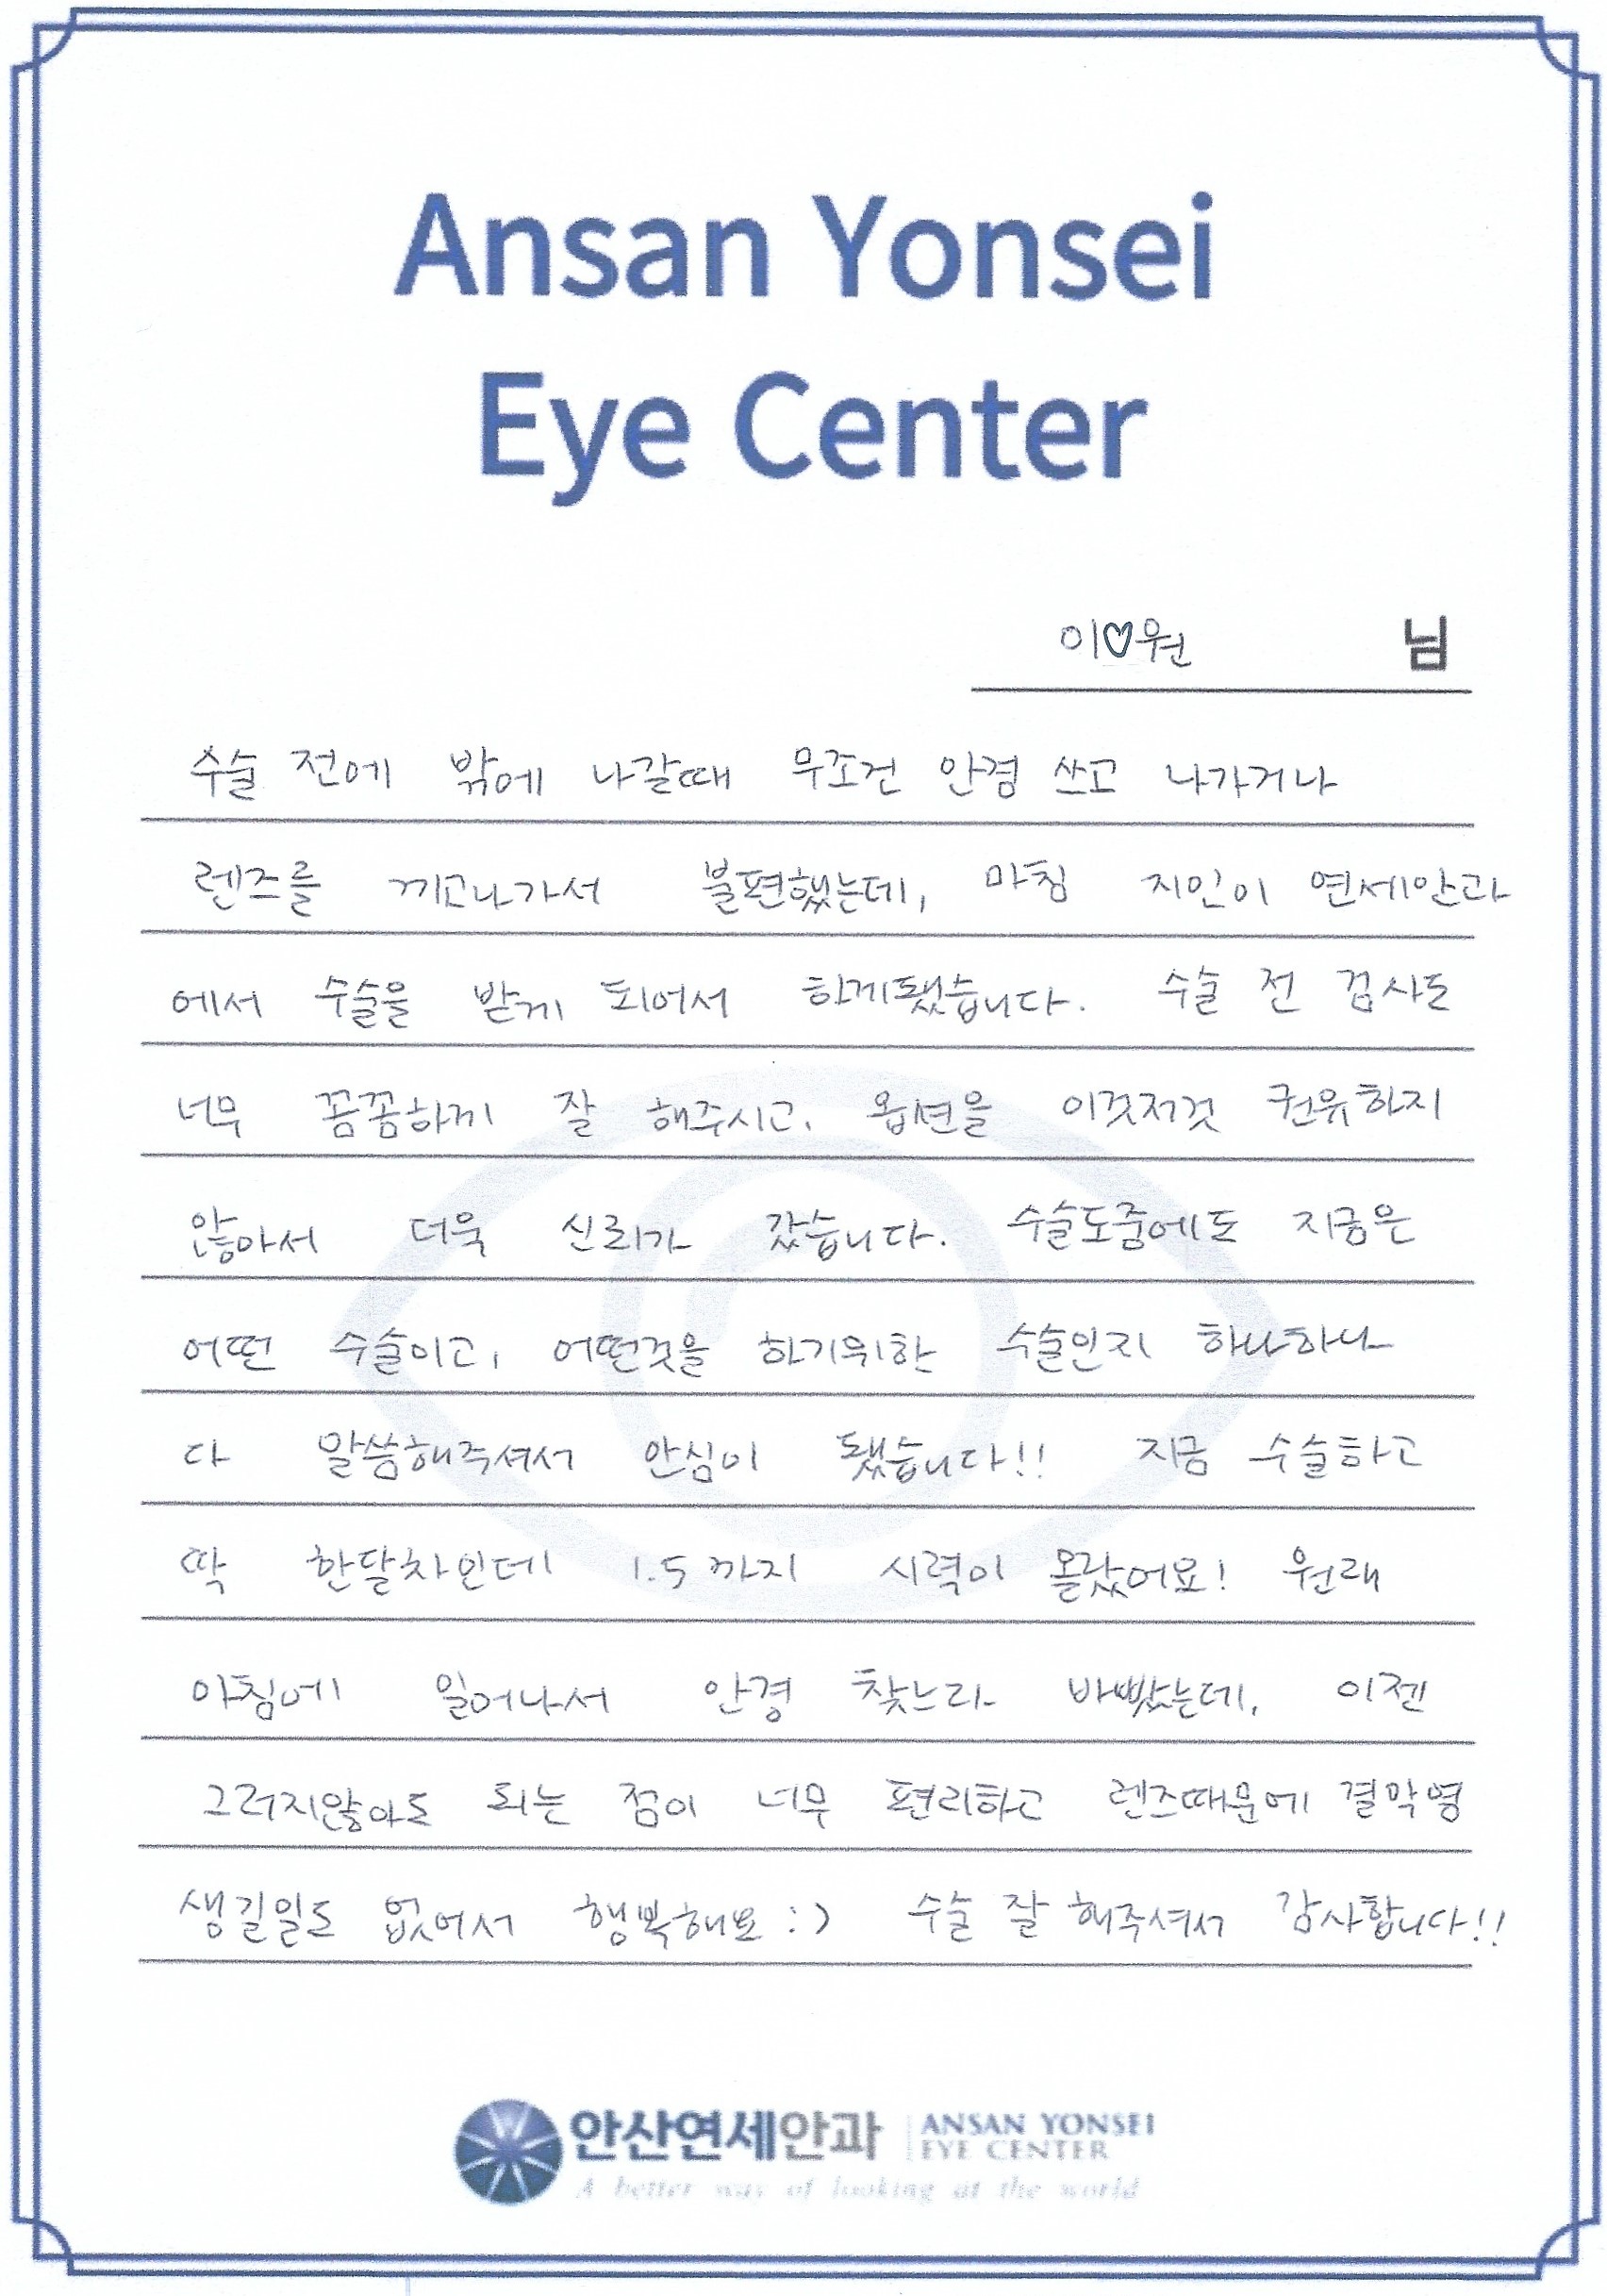 Ansan Yonsei
Eye Center
이♡원 님
수술 전에 밖에 나갈때 무조건 안경 쓰고 나가거나
렌즈를 끼고나가서 불편했는데, 마침 지인이 연세안과
에서 수술을 받게 되어서 하게됐습니다. 수술 전 검사도
너무 꼼꼼하게 잘 해주시고, 옵션을 이것저것 권유하지
않아서 더욱 신뢰가 갔습니다. 수술도중에도 지금은
어떤 수술이고, 어떤것을 하기위한 수술인지 하나하나
다 말씀해주셔서 안심이 됐습니다!! 지금 수술하고
딱 한달차인데 1.5까지 시력이 올랐어요! 원래
아침에 일어나서 안경 찾느라 바빴는데, 이젠
그러지않아도 되는 점이 너무 편리하고 렌즈때문에 결막염
생길일도 없어서 행복해요 :) 수술 잘 해주셔서 감사합니다!!
안산연세안과 ANSAN YONSEI
EYE CENTER
A better way of looking at the world